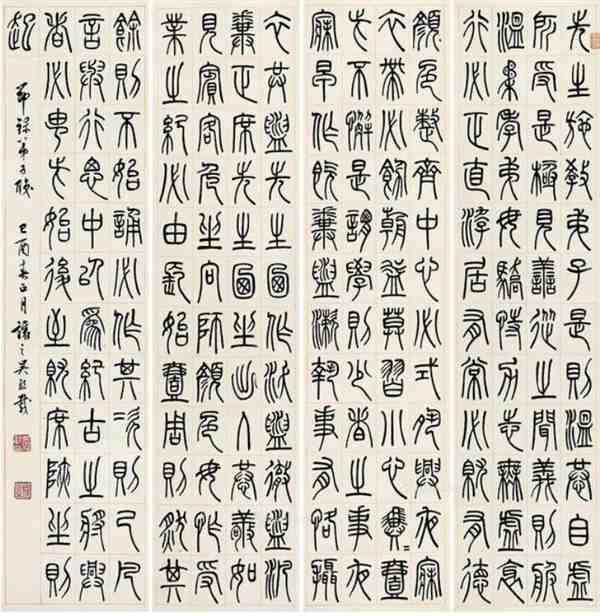 先生施教弟子是則溫恭自虛
所受是極見善從之聞義則服
溫柔孝弟毋驕恃力志無虛衺
行必正直游居有常必就有德
顏色整齊中心必式夙興夜寐
衣帶必飭朝益莫習小心翼〻壹
此不懈是謂學則少者之事夜
寐早作既糞盥漱執事有恪攝
衣共盥先生乃作沃盥徹盥汎
糞正席先生乃坐出入恭敬如
見賓客危坐向師顏色毋怍受
業之紀必由長始壹周則然其
餘則不始誦必作其次則已凡
言與行思中以爲紀古之將興
者必由此始後至就席陝坐則
起
節錄弟子職 己酉春正月 讓之吳熙載